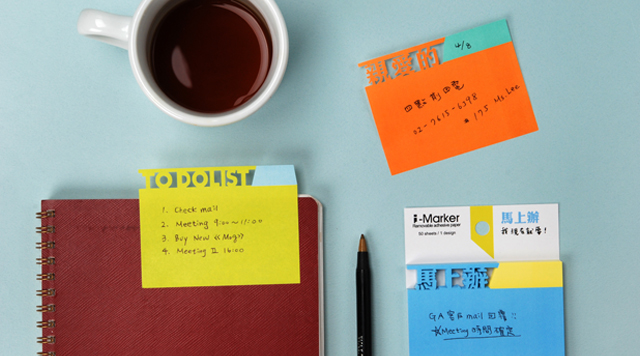 親愛的
4/8
四點前回電
02-2615-6398
# 175 Ms. Lee
TO DO LIST
1. Check mail
2. Meeting 9:00~11:00
3. Buy New <Mugs>
4. Meeting II 16:00
i-Marker
Removable adhesive paper
50 sheets / 1 design
馬上辦
我很有記事!
馬上辦
GA 客戶 mail 回覆!!
☆Meeting 時間 確定